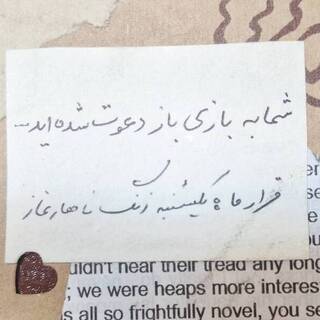 شما به بازی باز دعوت شده اید...
قرار ما یکشنبه زنگ ناهار نماز
uldn't hear their tread any long
; we were heaps more interes
s all so frightfully novel, you se